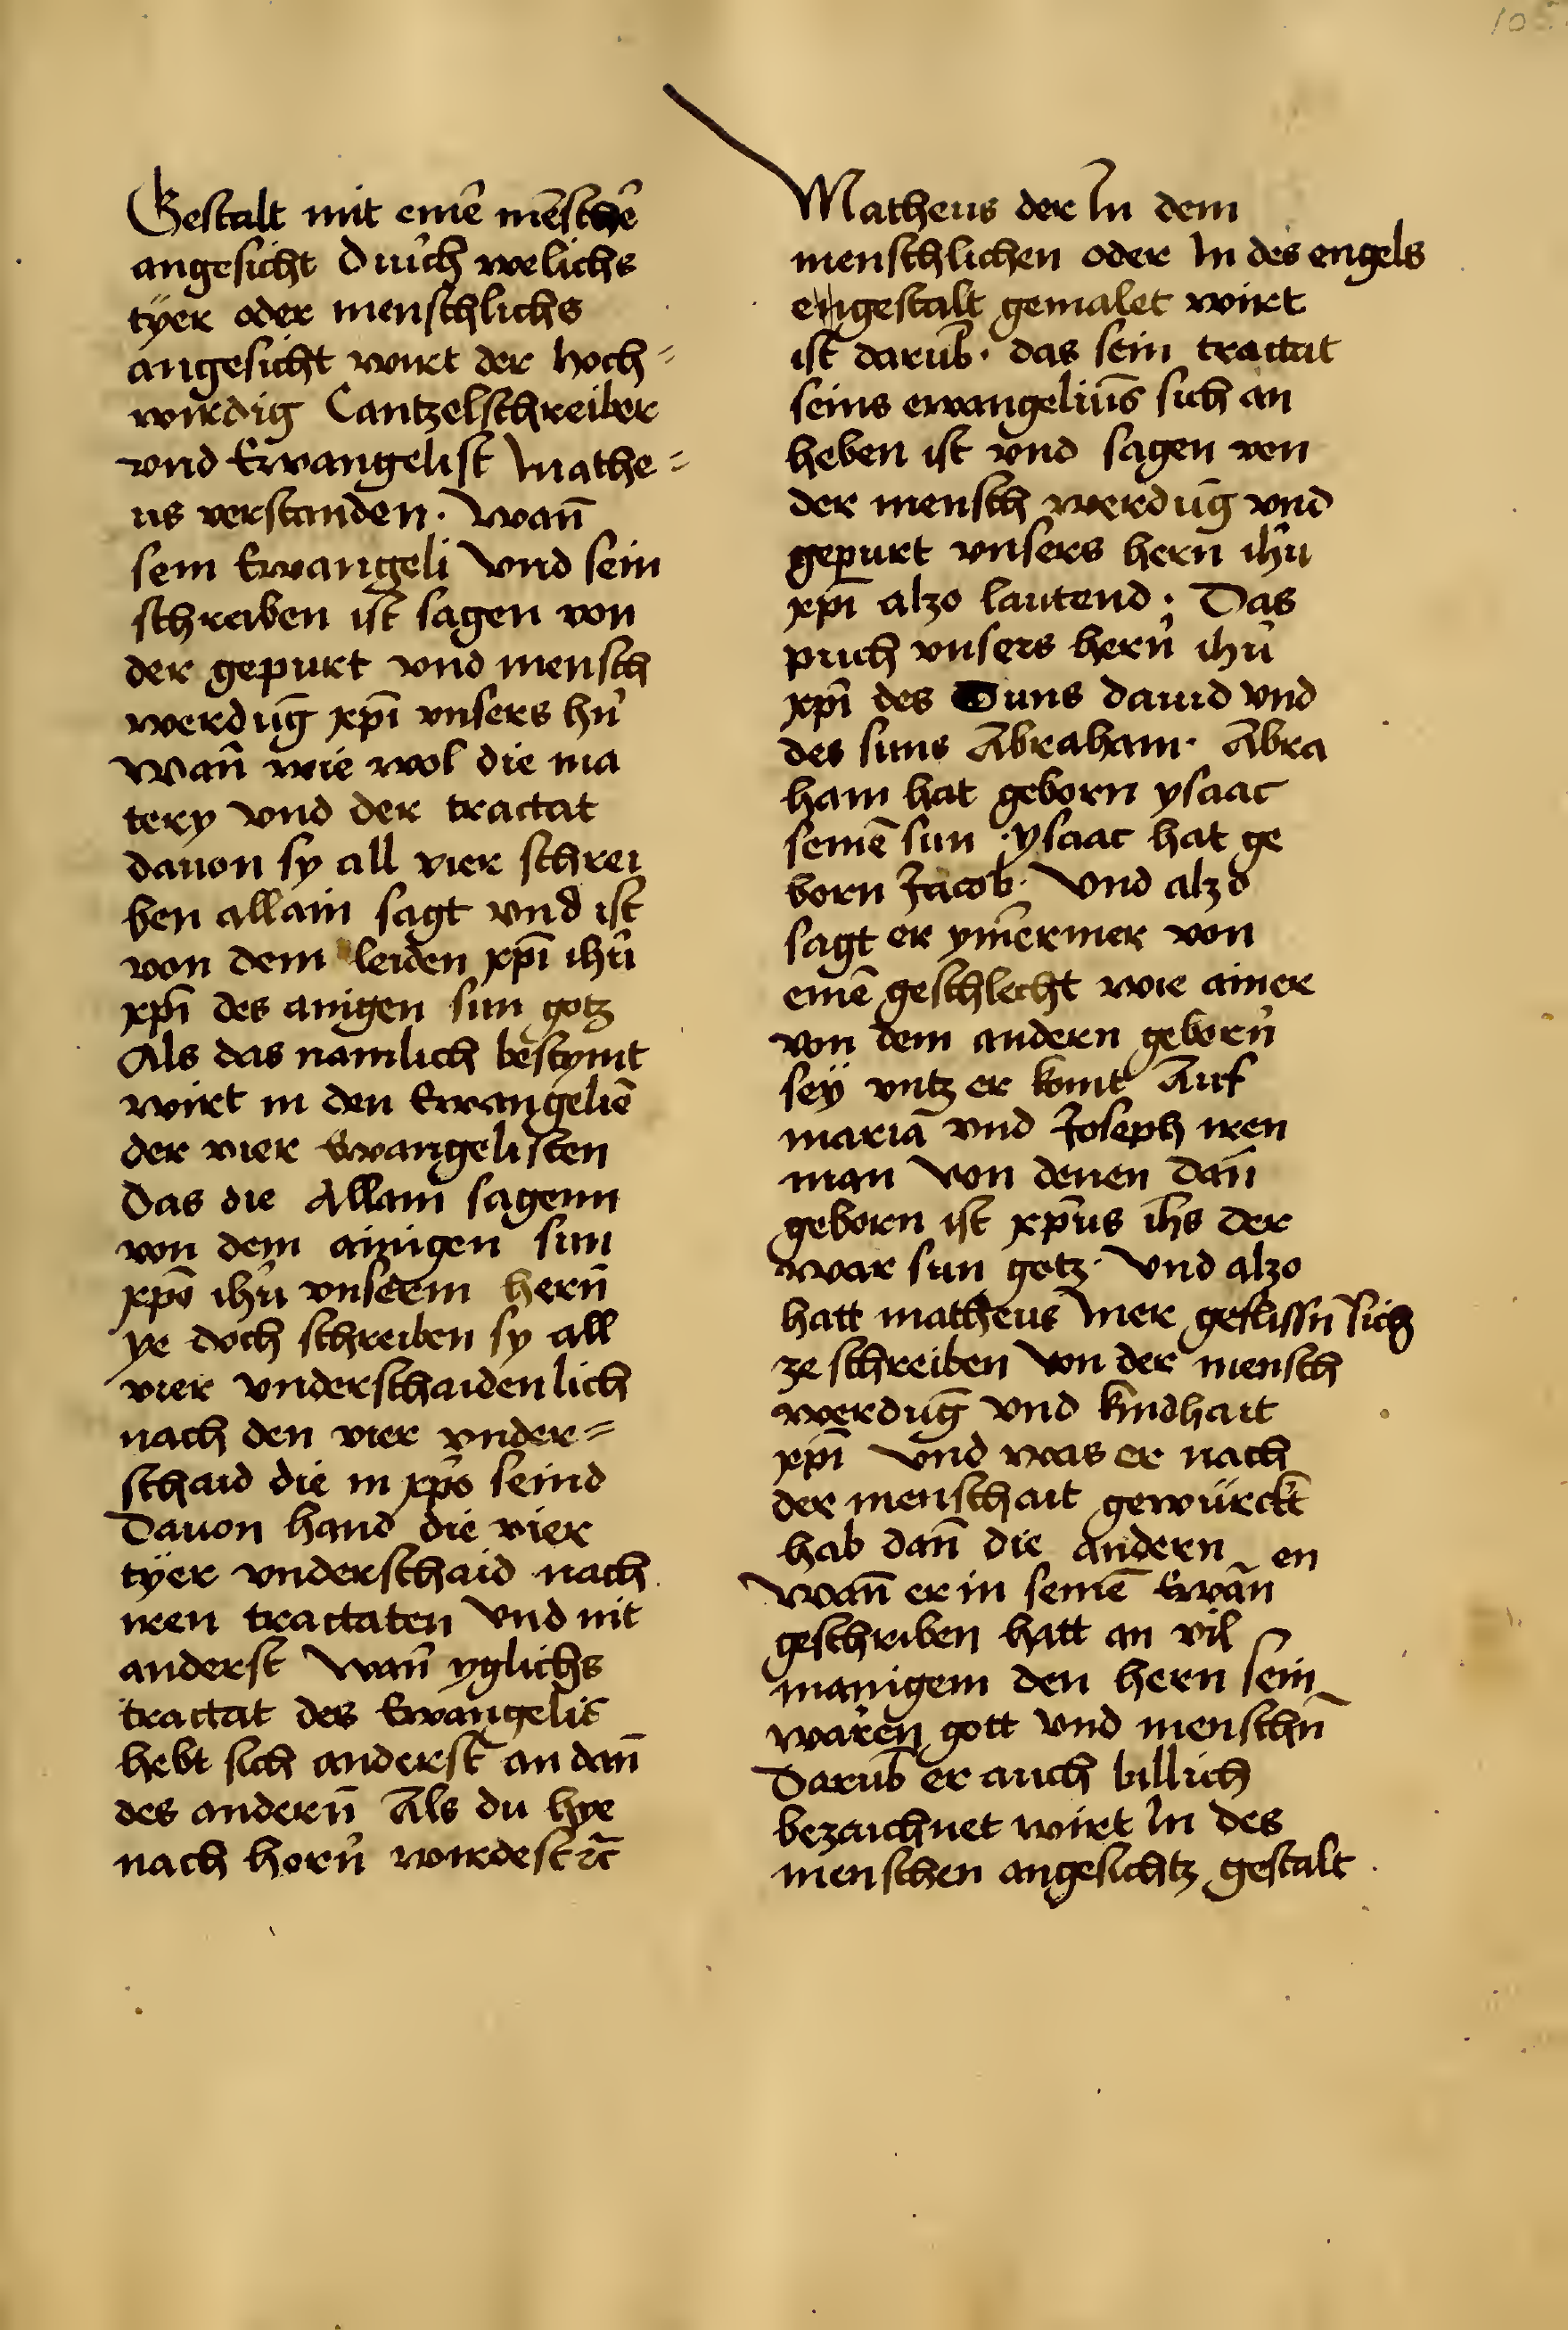 105
Gestalt mit eine̅ me̅sche̅
angesicht Durch welichs
tÿer oder menschlichs
angesicht wirt der hoch=
wirdig Cantzelschreiber
vnd Ewangelist Mathe=
us verstanden. wan̅
sein Ewangeli Vnd sein
schreiben ist sagen von
der gepurt vnd mensch
werdu̅g xp̅i vnsers hn̅
Wan̅ wie wol die ma
tery Vnd der tractat
dauon sy all vier schrei
ben allain sagt vnd ist
von dem leiden xp̅i ih̅u
xp̅i des ainigen sun gotz
Als das namlich bestymt
wirt in den Ewangelie̅
der vier Ewangelisten
Das die Allain sagenn
von dem ainigen sun
xp̅o ih̅u vnserm hern̅
ye doch schreiben sy all
vier vnderschaidenlich
nach den vier vnder=
schaid die in xp̅o seind
Dauon hand die vier
tÿer vnderschaid nach
iren tractaten Vnd nit
anderst Wan̅ yglichs
tractat des Ewangelis
hebt sich anderst an dan̅
des andern̅ Als du hye
nach horn̅ wirdest ꝛc̅
Matheus der In dem
menschlichen oder In des engels
engestalt gemalet wirt
ist daru̅b. das sein tractat
seins ewangeliu̅s sich an
heben ist vnd sagen von
der mensch werdu̅g vnd
gepurt vnsers hern̅ ih̅u
xp̅i alzo lautend. Das
puch vnsers hern̅ ih̅u
xp̅i des Suns dauid Vnd
des suns Abraham. Abra
ham hat geborn ysaac
seine̅ sun. ysaac hat ge
born Jacob. Vnd alzo
sagt er ym̅ermer von
eine̅ geschlecht wie ainer
von dem andern geborn̅
seÿ vntz er komt Auf
maria̅ vnd Joseph iren
man Von denen dan̅
geborn ist xp̅us ih̅s der
war sun gotz. Vnd alzo
hatt matheus Mer geflissn̅ sich
ze schreiben Von der mensch
werdu̅g Vnd kindhait
xp̅i Vnd was er nach
der menschait gewürckt
hab dan̅ die Andern
Wan̅ er in seine̅ Ewan̅en
geschriben hatt an vil
manigem den hern sein
waren gott Vnd menschn̅
Daru̅b er auch billich
bezaichnet wirt In des
menschen angesichtz gestalt